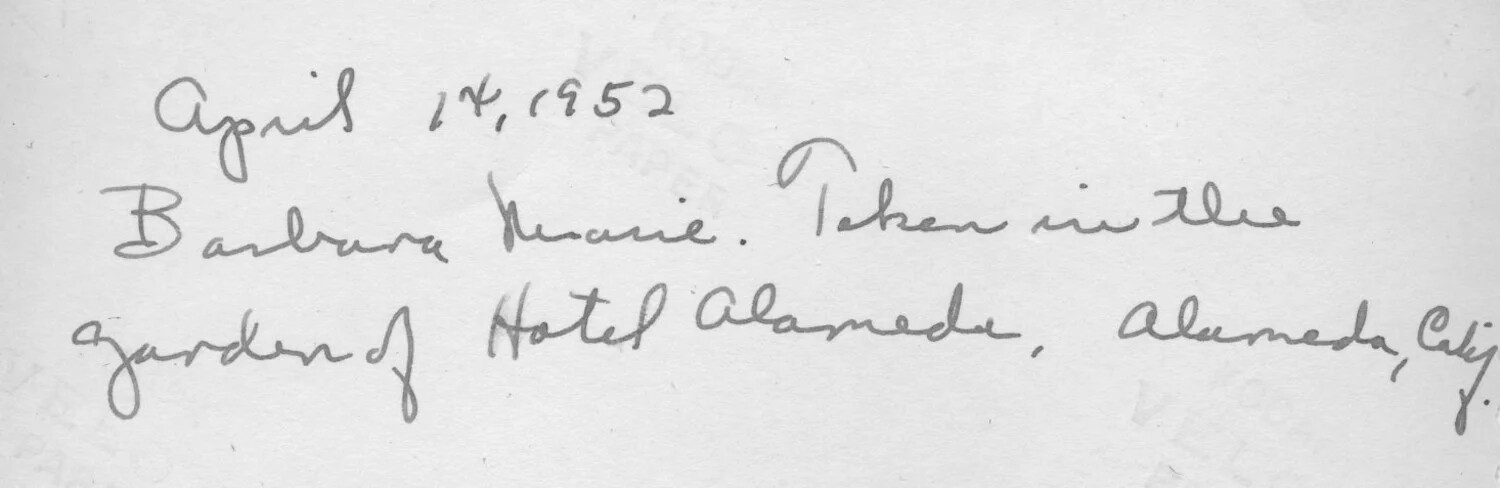 April 14, 1952
Barbara Marie. Taken in the
garden of Hotel Alameda, Alameda, Calif.
VELO